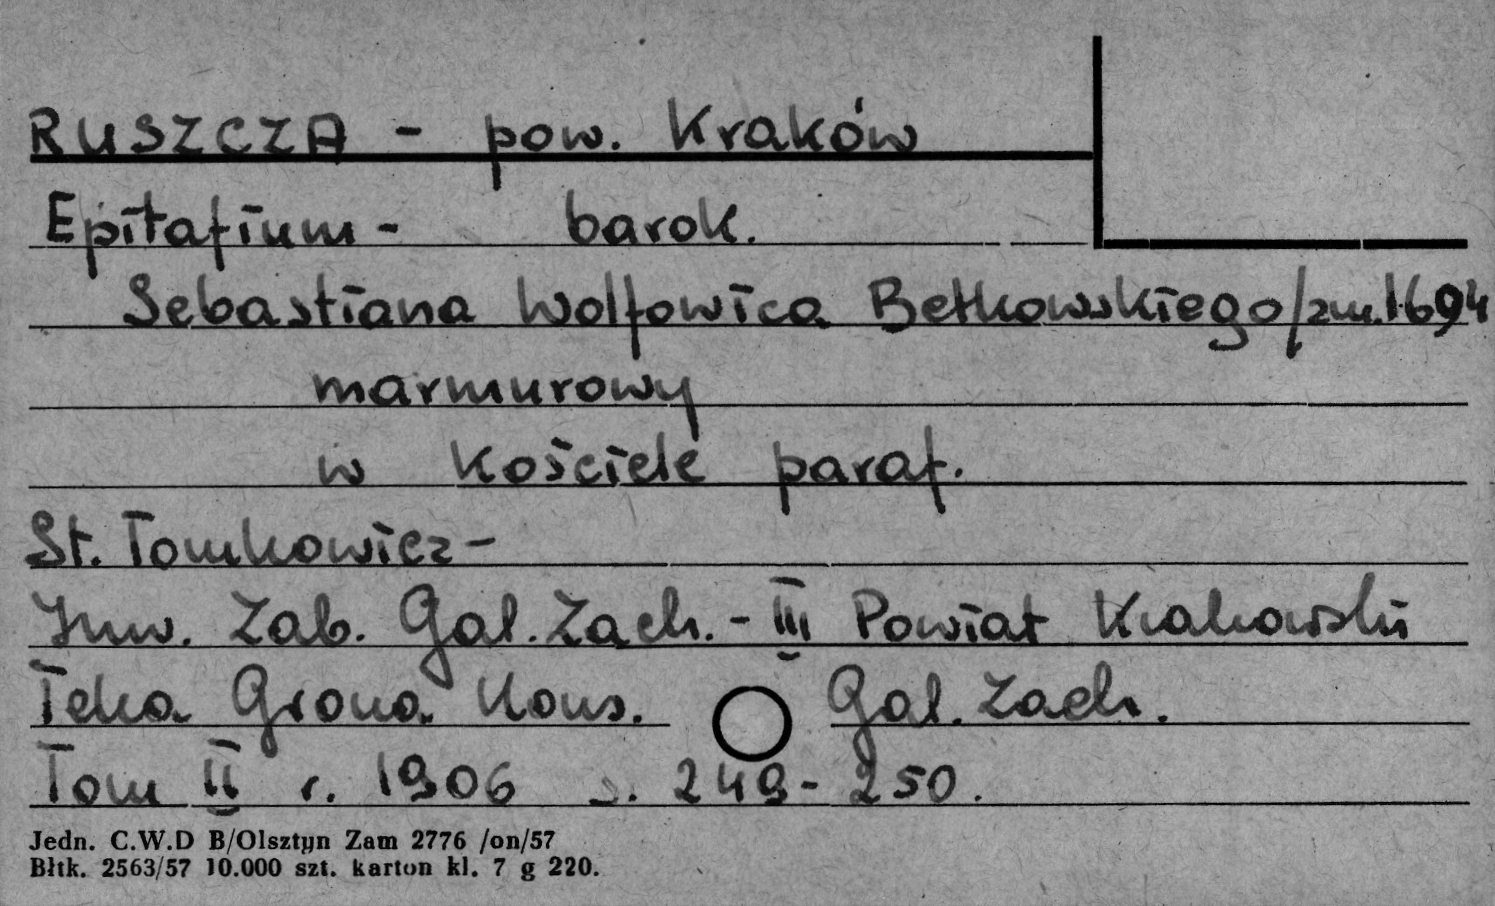 RUSZCZA - pow. Kraków
Epitafium - barok.
Sebastiana Wolfowica Betkowskiego /zm. 1694
marmurowy
w kościele paraf.
St. Tomkowicz -
Inw. Zab. Gal. Zach. - III Powiat Krakowski
Teka Grona Kons. Gal. Zach.
Tom II r. 1906 s. 249 - 250.
Jedn. C.W.D B/Olsztyn Zam 2776 /on/57
Błtk. 2563/57 10.000 szt. karton kl. 7 g 220.